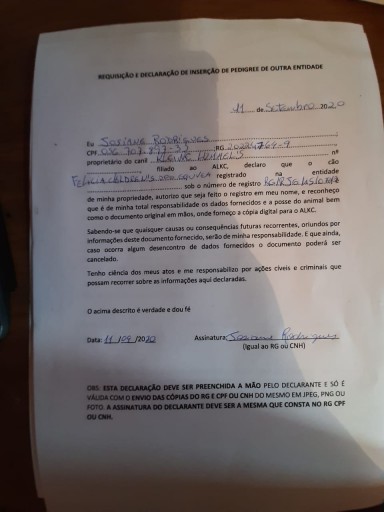 REQUISIÇÃO E DECLARAÇÃO DE INSERÇÃO DE PEDIGREE DE OUTRA ENTIDADE
11 de Setembro 2020
Eu JOSIANE RODRIGUES
CPF RG
proprietário do canil nº
filiado ao ALKC, declaro que o cão
registrado na entidade
sob o número de registro
de minha propriedade, autorizo que seja feito o registro em meu nome, e reconheço
que é de minha total responsabilidade os dados fornecidos e a posse do animal bem
como o documento original em mãos, onde forneço a cópia digital para o ALKC.
Sabendo-se que quaisquer causas ou consequências futuras recorrentes, oriundos por
informações deste documento fornecido, serão de minha responsabilidade. E que ainda,
caso ocorra algum desencontro de dados fornecidos o documento poderá ser
cancelado.
Tenho ciência dos meus atos e me responsabilizo por ações cíveis e criminais que
possam recorrer as informações aqui declaradas.
O acima descrito é verdade e dou fé
Data: 11/09/2020 Assinatura: Josiane Rodrigues
(Igual ao RG ou CNH)
OBS: ESTA DECLARAÇÃO DEVE SER PREENCHIDA A MÃO PELO DECLARANTE E SÓ É
VÁLIDA COM O ENVIO DAS CÓPIAS DO RG E CPF OU CNH DO MESMO EM JPEG, PNG OU
FOTO. A ASSINATURA DO DECLARANTE DEVE SER A MESMA QUE CONSTA NO RG CPF
OU CNH.